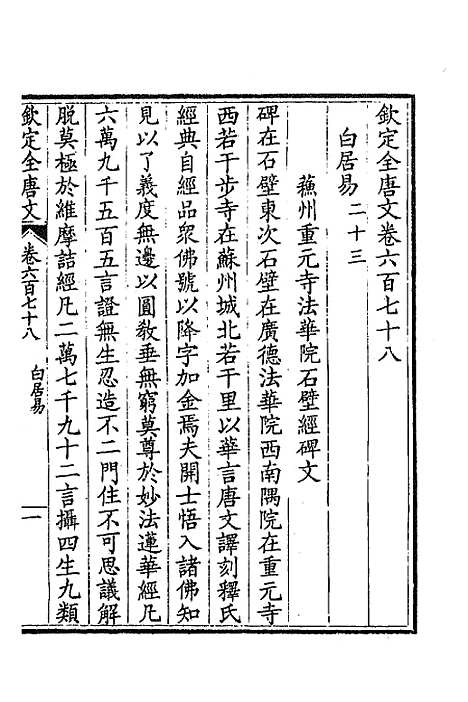 欽定全唐文卷六百七十八
白居易二十三
蘓州重元寺法華院石壁經碑文
碑在石壁東次石壁在廣德法華院西南隅院在重元寺
西若干步寺在蘇州城北若干里以華言唐文譯刻釋氏
經典自經品衆佛號以降字加金焉夫開士悟入諸佛知
見以了義度無邊以圓敎垂無窮莫尊於妙法蓮華經凡
六萬九千五百五言證無生忍造不二門住不可思議解
脫莫極於維摩詰經凡二萬七千九十二言攝四生九類
欽定全唐文
卷六百七十八
白居易
一